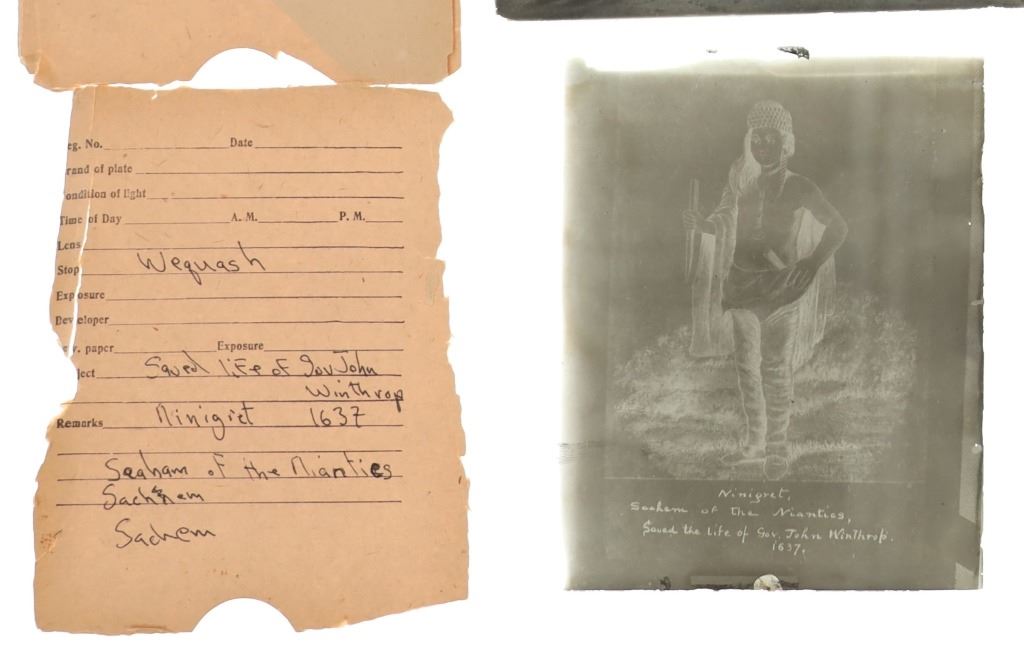 eg. No. Date
rand of plate
ondition of light
Time of Day A. M. P. M.
Lens
Stop Wequash
Exposure
Developer
v. paper Exposure
ject Saved life of Gov John
Winthrop
Remarks Ninigret 1637
Seaham of the Nianties
Sachem
Sachem
Ninigret,
Sachem of the Nianties,
Saved the life of Gov. John Winthrop.
1637.